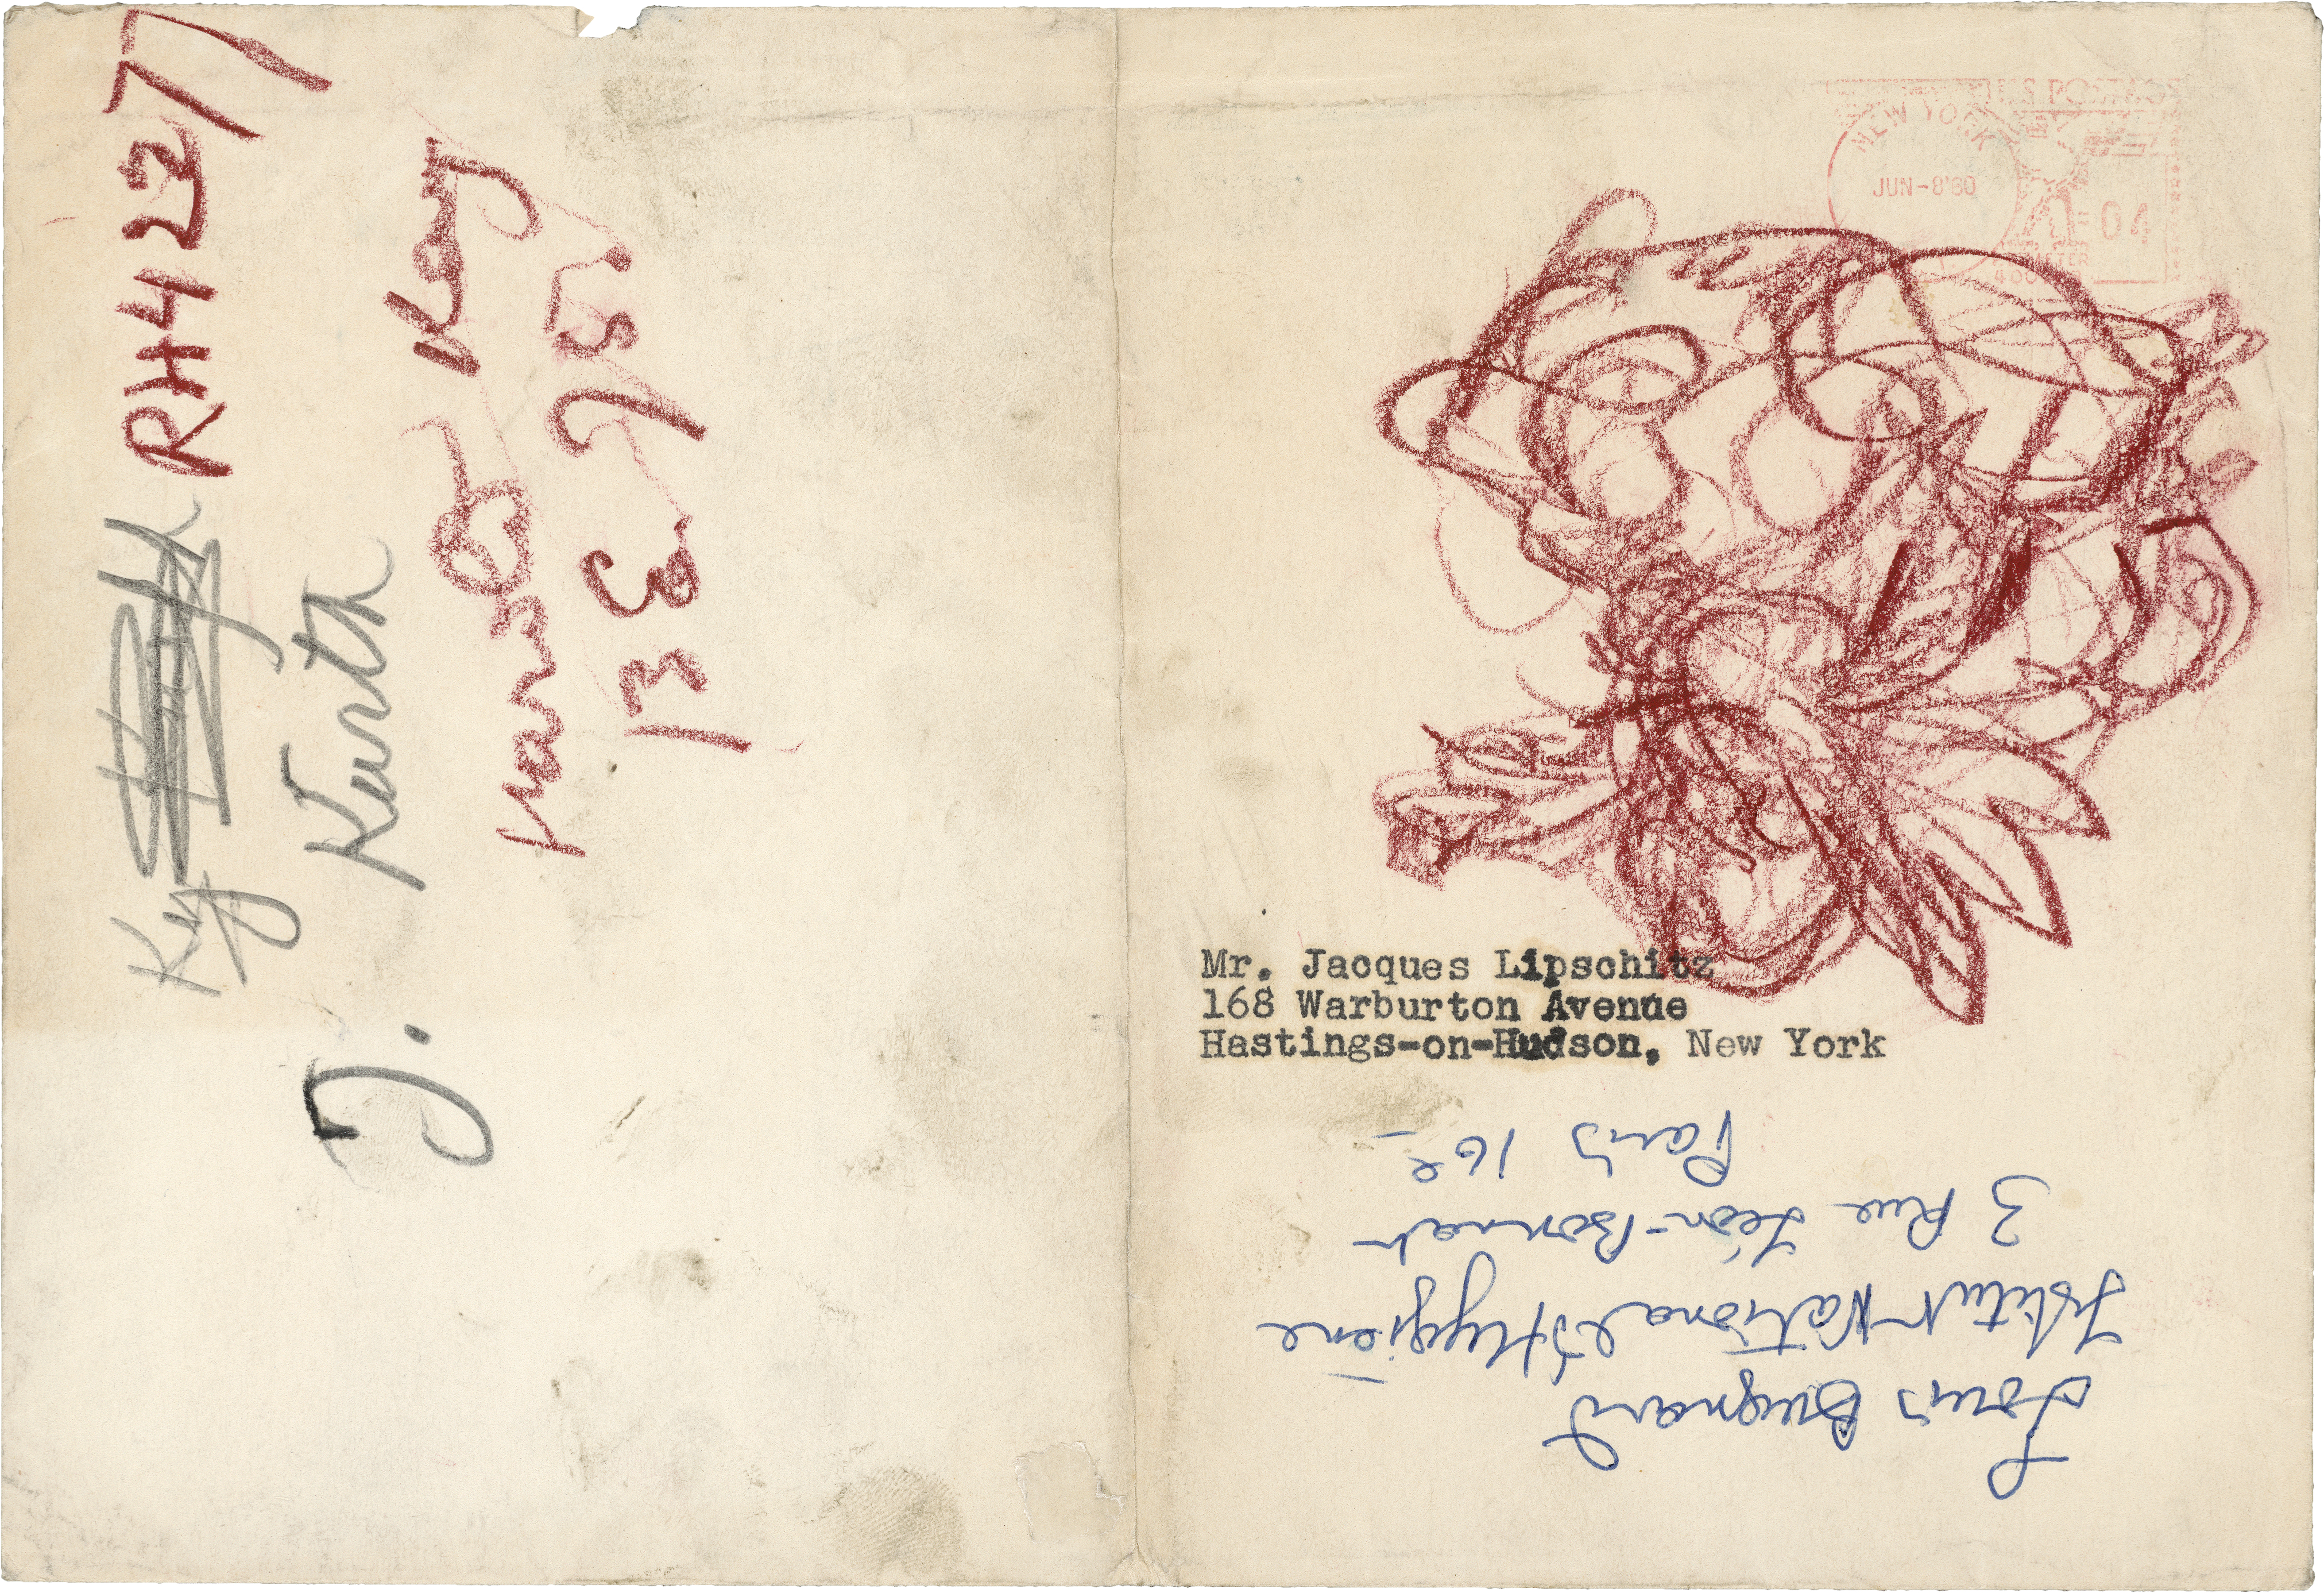 U.S. POSTAGE
NEW YORK
JUN-8'60
04
METER
Mr. Jacques Lipschitz
168 Warburton Avenue
Hastings-on-Hudson, New York
Louis Bugnard
Institut National d'Hygiène
3 Rue Léon-Bonnat
Paris 16e
RH4 2277
Ky
J. Kurth
13 E 75